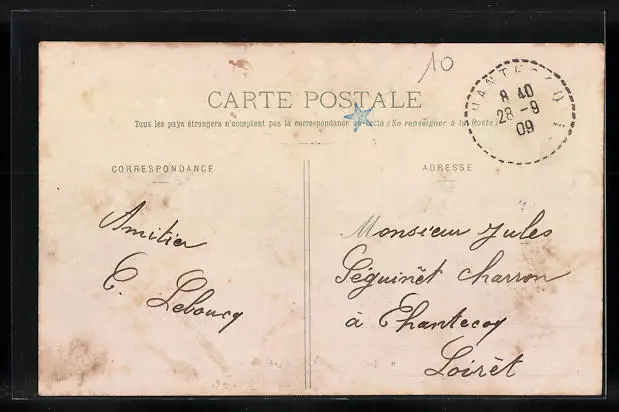 10
CARTE POSTALE
Tous les pays étrangers n'acceptent pas la correspondance au recto (Se renseigner à la Poste)
8 40
28 -9
09
CORRESPONDANCE
ADRESSE
Amitier
E. Leboucq
Monsieur Jules
Séguinèt charron
à Chantecoq
Loirèt